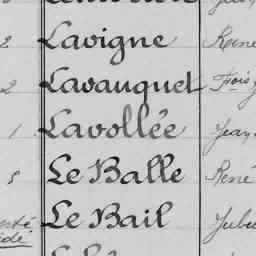 2 Lavigne René
2 Lavauquet Fois
1 Lavollée Jean
5 Le Balle René
Le Bail